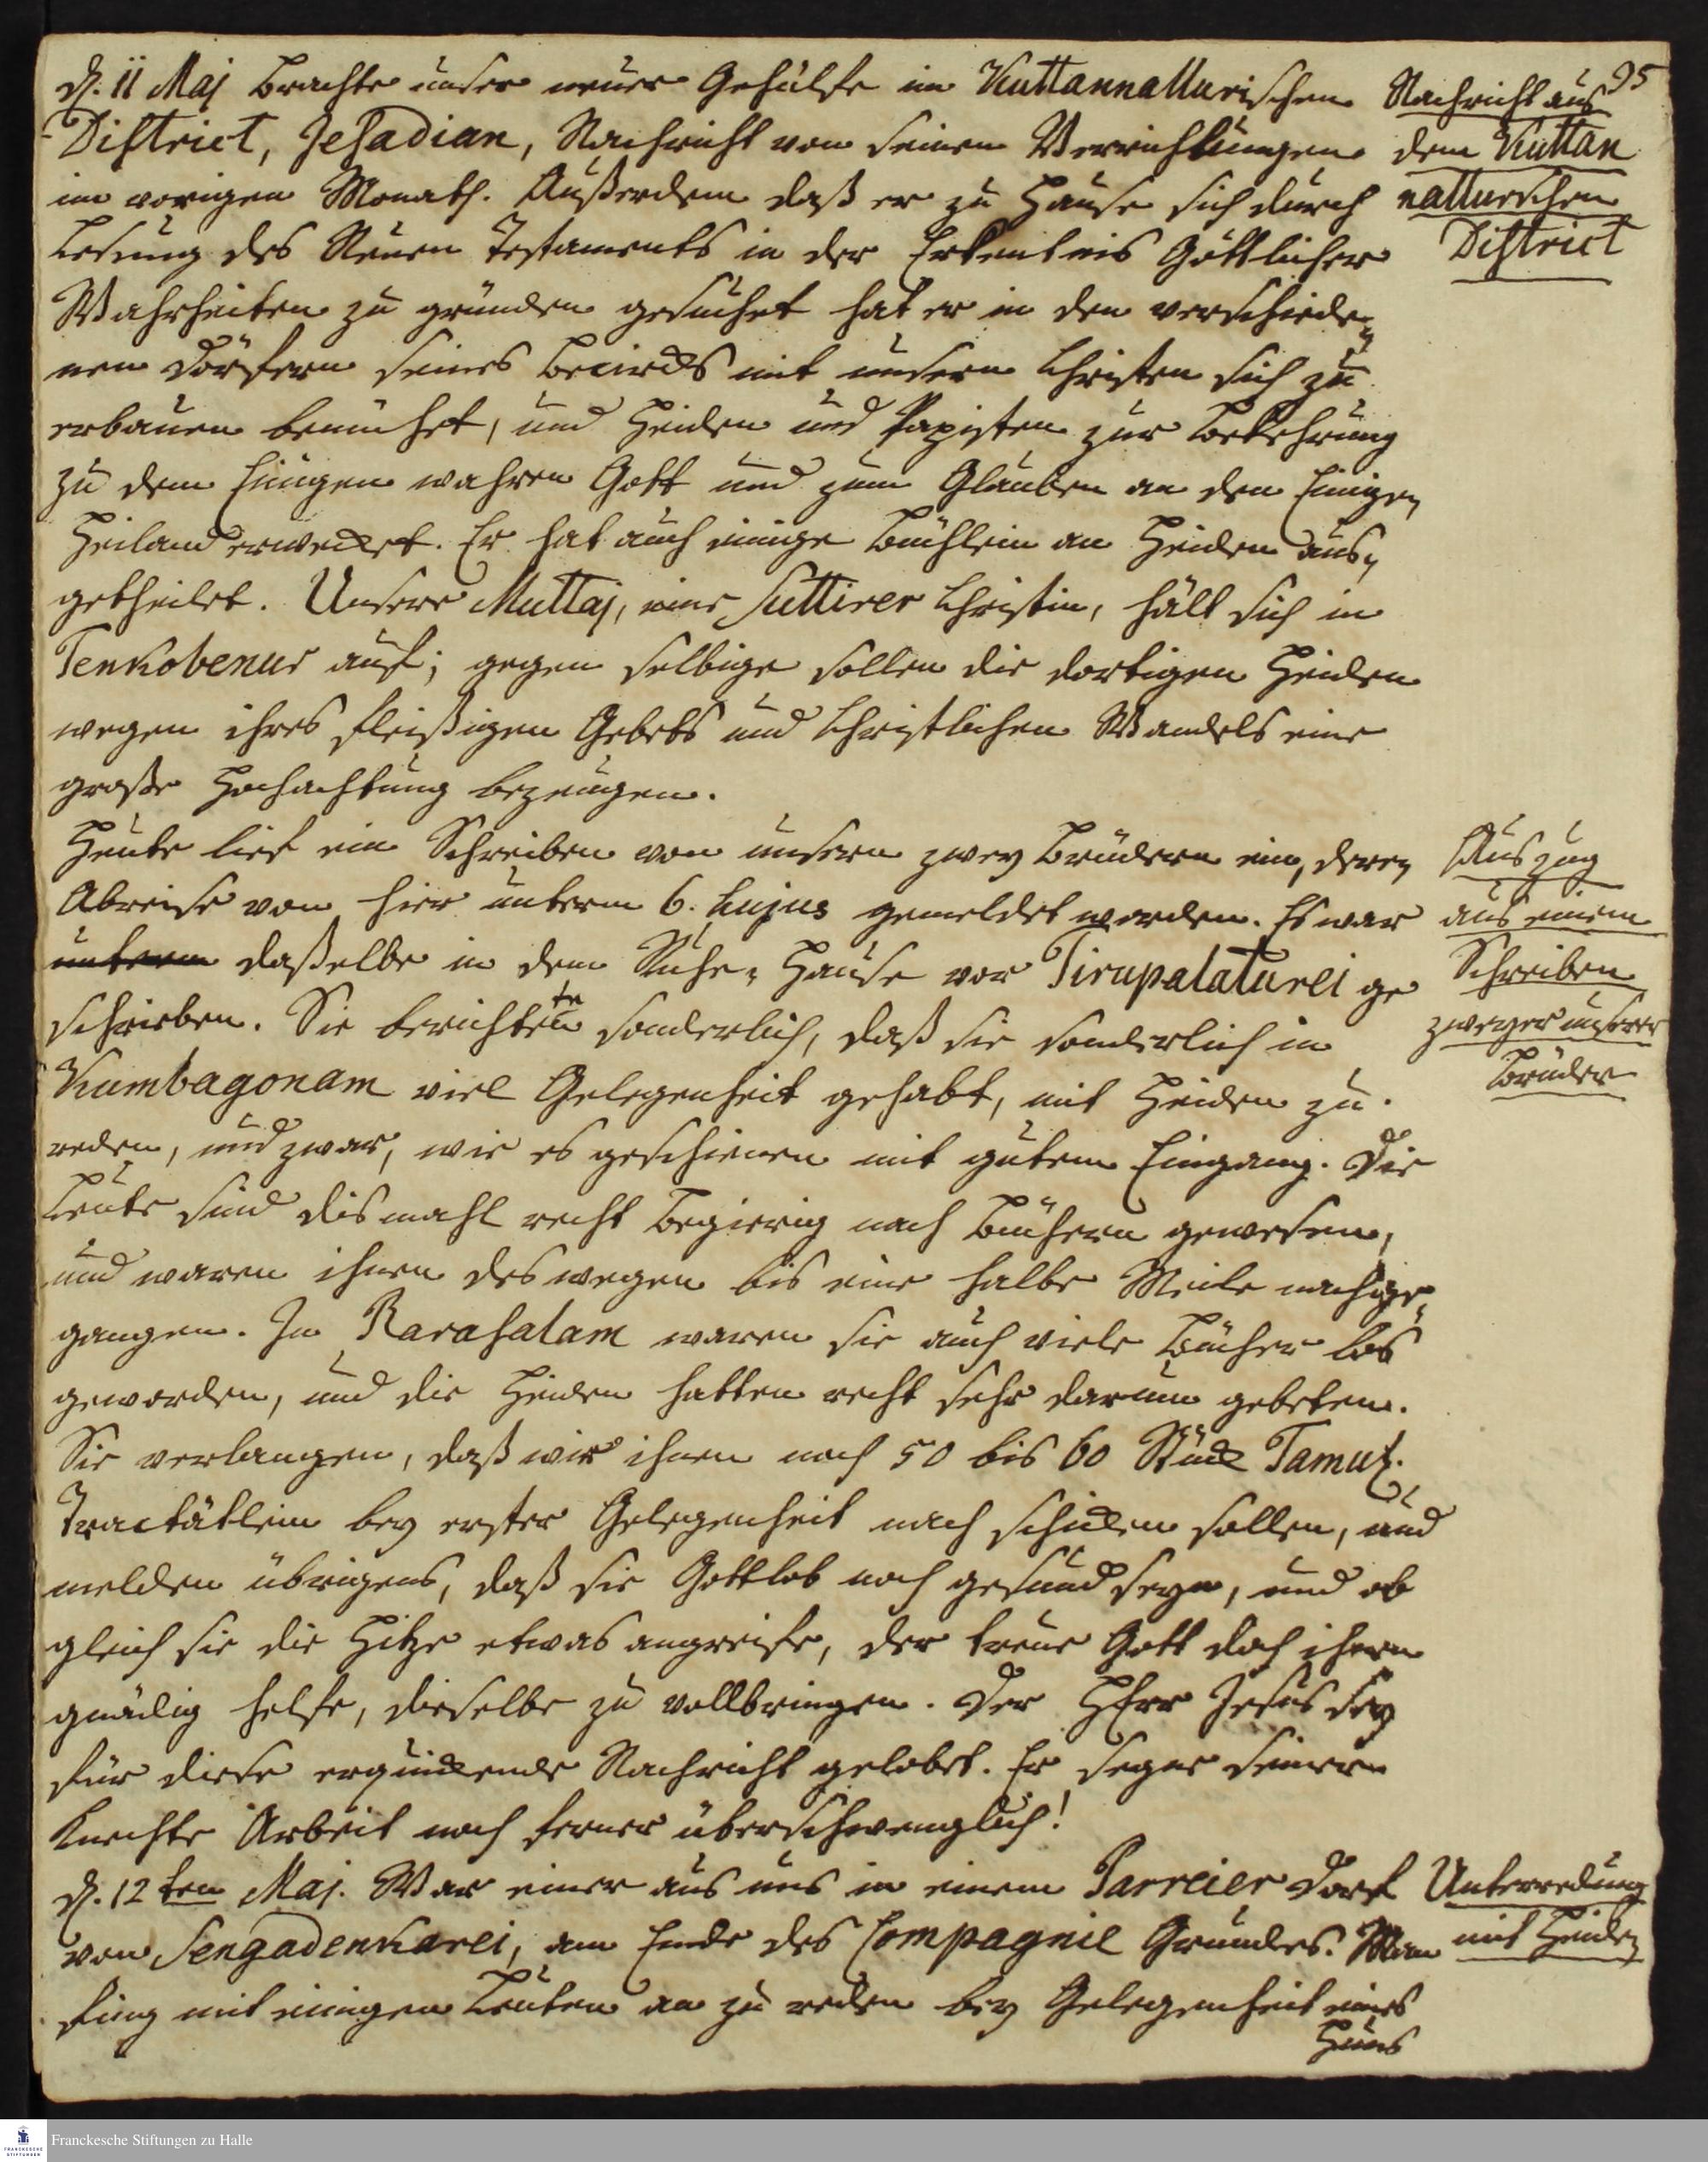 95
d. 11 Maj brachte unser neuer Gehülfe im Kuttannallurischen
District, Jesadian, Nachricht von seinen Verrichtungen
im vorigen Monath. Außerdem daß er zu Hause sich durch
Lesung des Neuen Testaments in der Erkentnis Göttlicher
Wahrheiten zu gründen gesuchet hat er in den verschiede-
nen Dörfern seines Becircks mit unsern Christen sich zu
erbauen bemühet, und Heiden und Papisten zur Bekehrung
zu dem Einigen wahren Gott und zum Glauben an den Einigen
Heiland erwecket. Er hat auch einige Büchlein an Heiden aus-
getheilet. Unsere Muttaj, eine Suttirer Christin, hält sich in
Tenkobenur auf; gegen selbige sollen die dortigen Heiden
wegen ihres fleißigen Gebets und Christlichen Wandels eine
große Hochachtung bezeugen.
Nachricht aus
dem Kuttan
nallurschen
District
Heute lief ein Schreiben von unsern zwey Brüdern ein, deren
Abreise von hier unterm 6. hujus gemeldet worden. Es war
unterm daßelbe in dem Ruhe-Hause vor Tirupalaturei ge
schrieben. Sie berichteten sonderlich, daß sie sonderlich in
Kumbagonam viel Gelegenheit gehabt, mit Heiden zu
reden, und zwar, wie es geschienen mit gutem Eingang. Die
Leute sind dismahl recht begierig nach Büchern gewesen,
und waren ihnen deswegen bis eine halbe Meile nachge-
gangen. In Rarasalam waren sie auch viele Bücher los
geworden, und die Heiden hatten recht sehr darum gebeten.
Sie verlangen, daß wir ihnen noch 50 bis 60 Stück Tamul.
Tractätlein bey erster Gelegenheit nach schicken sollen, und
melden übrigens, daß sie Gottlob noch gesund seyn, und ob
gleich sie die Hitze etwas angreife, der treue Gott doch ihnen
gnädig helfe, dieselbe zu vollbringen. Der HErr Jesus sey
für diese erquickende Nachricht gelobet. Er segne seiner
Knechte Arbeit noch ferner überschwenglich!
Auszug
aus einem
Schreiben
zweyer unserer
Brüder
d. 12ten Maj. War einer aus uns in einem Parreier Dorf
von Sengadenkarei, am Ende des Compagnie Grundes. Man
fing mit einigen Leuten an zu reden bey Gelegenheit eines
Huns
Unterredung
mit Heiden
Franckesche Stiftungen zu Halle
FRANCKESCHE
STIFTUNGEN